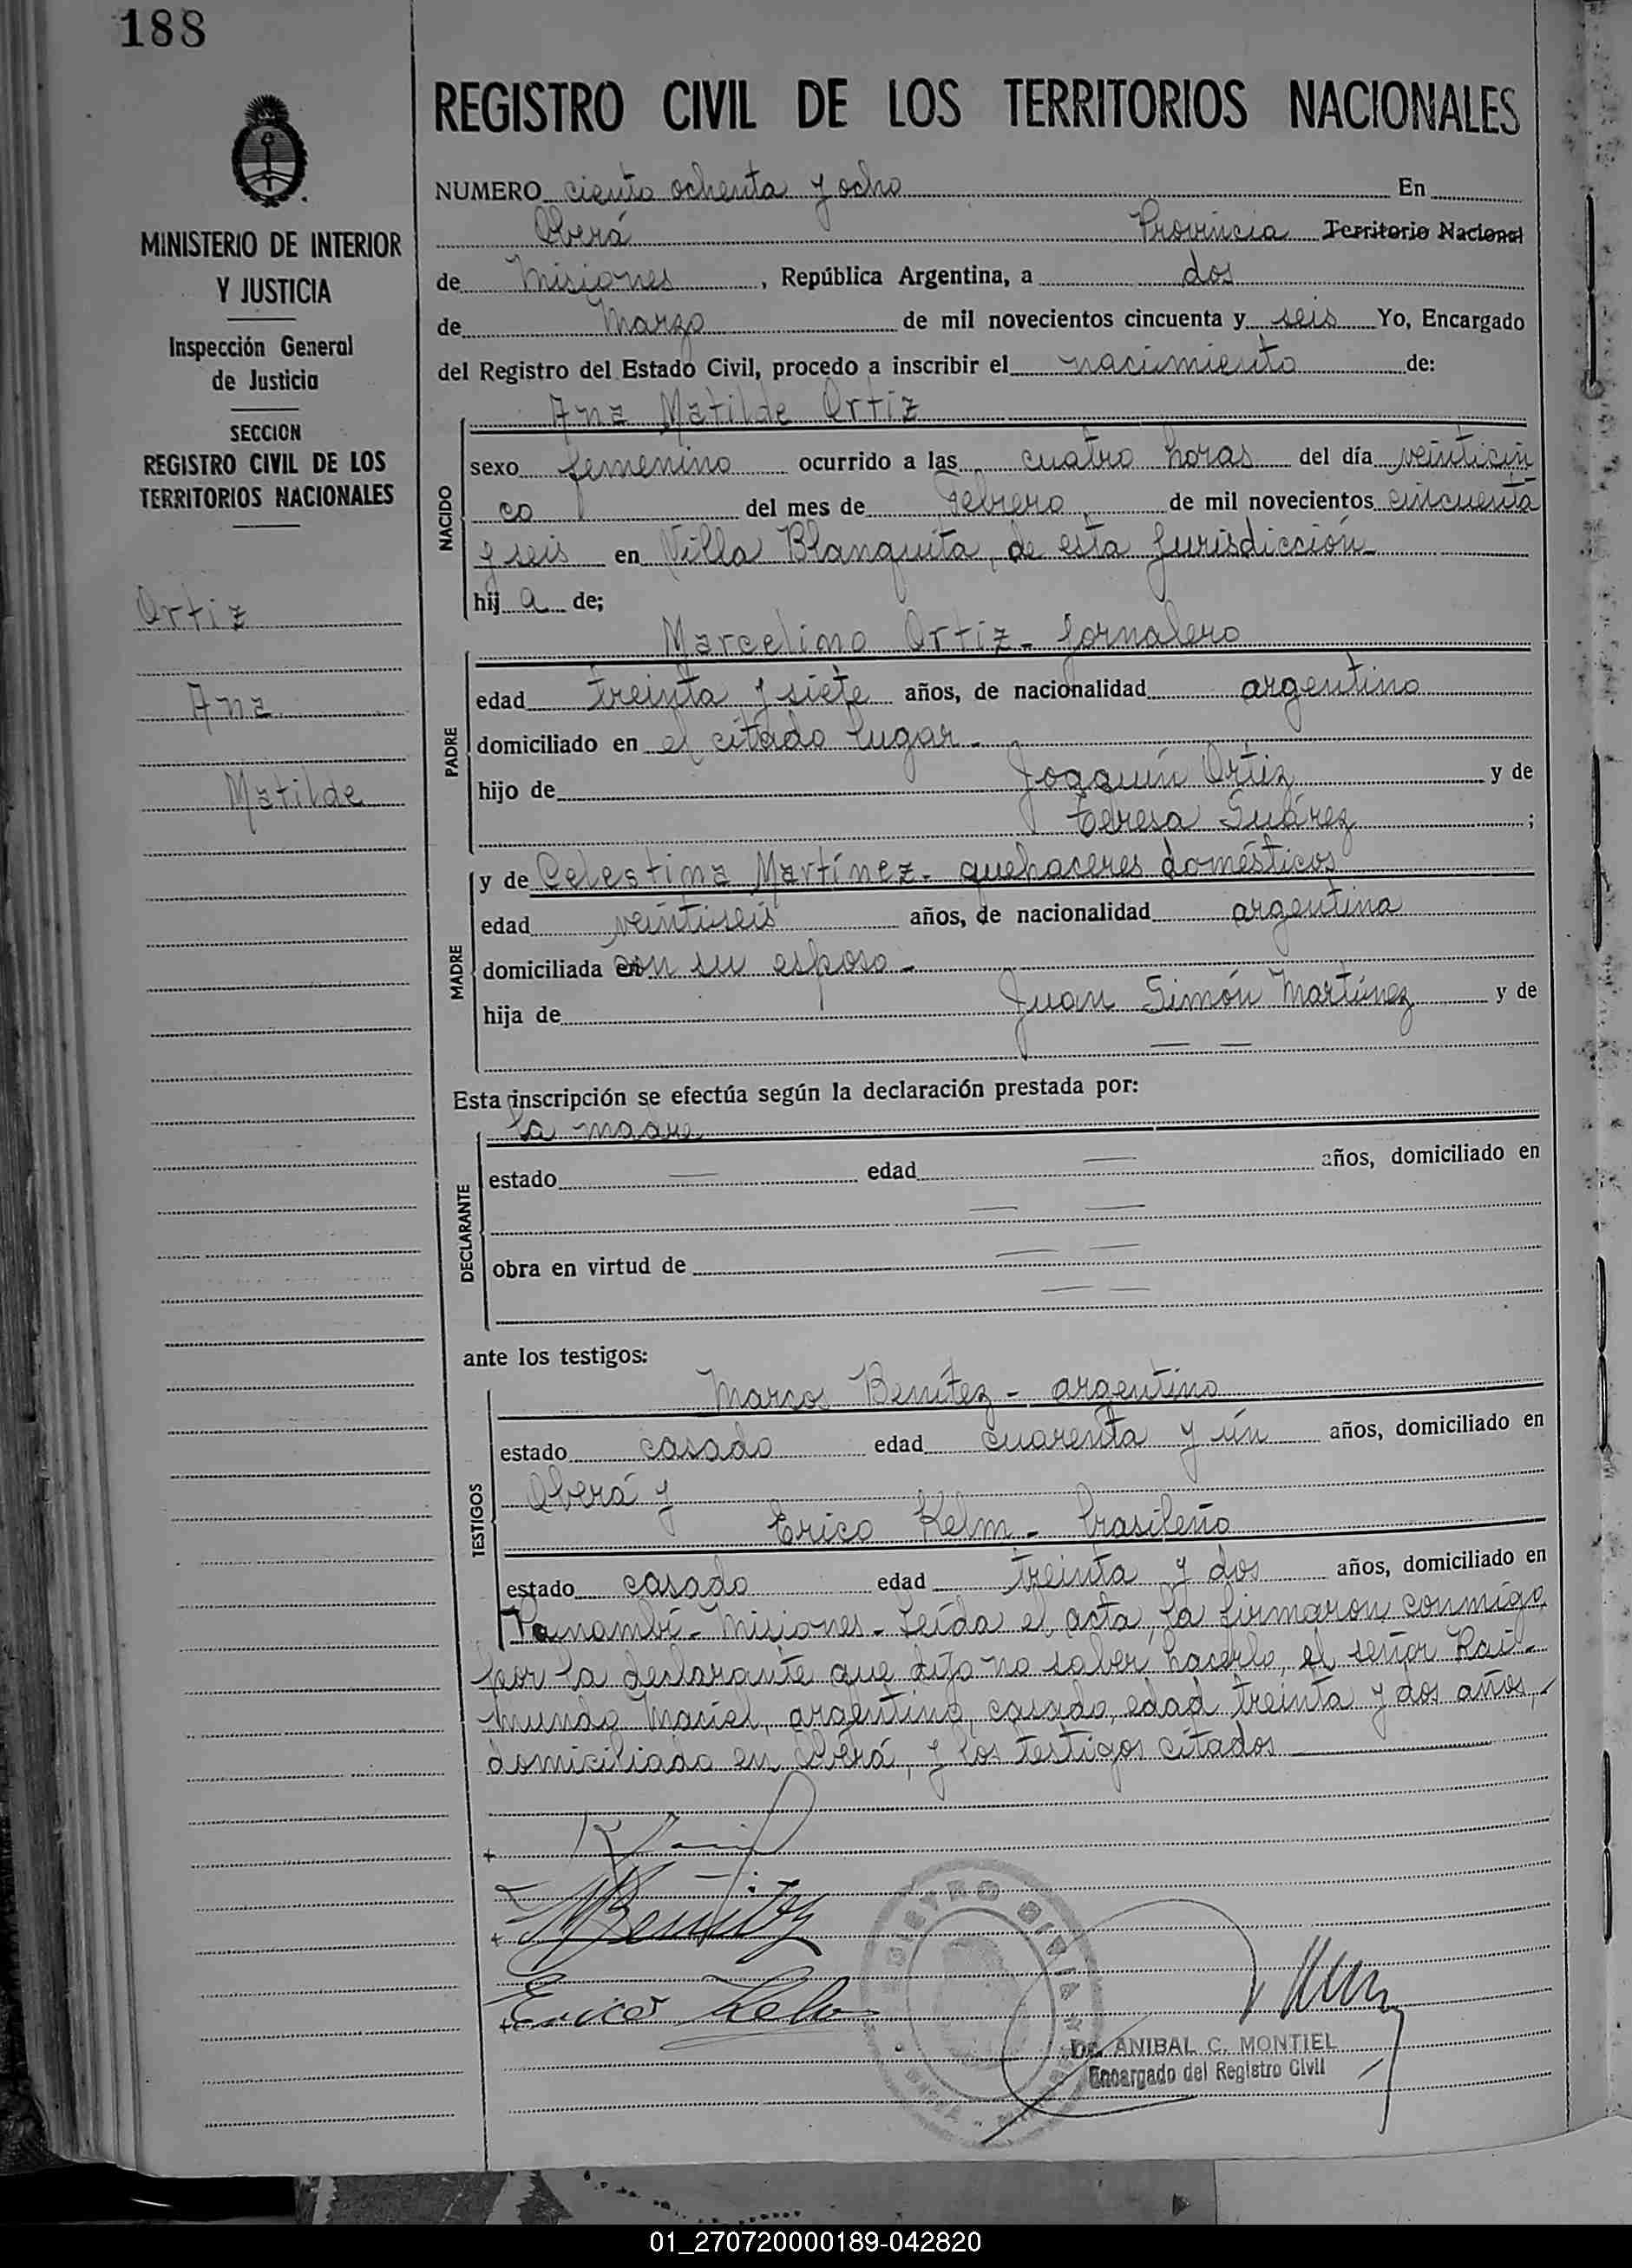 188
REGISTRO CIVIL DE LOS TERRITORIOS NACIONALES
MINISTERIO DE INTERIOR
Y JUSTICIA
Inspección General
de Justicia
SECCION
REGISTRO CIVIL DE LOS
TERRITORIOS NACIONALES
Ortiz
Ana
Matilde
NUMERO ciento ochenta y ocho En
Oberá Provincia Territorio Nacional
de Misiones, República Argentina, a dos
de Marzo de mil novecientos cincuenta y seis Yo, Encargado
del Registro del Estado Civil, procedo a inscribir el nacimiento de:
Ana Matilde Ortiz
NACIDO
sexo femenino ocurrido a las cuatro horas del día veinticin
co del mes de Febrero de mil novecientos cincuenta
y seis en Villa Blanquita, de esta Jurisdicción
hij a de;
PADRE
Marcelino Ortiz - Jornalero
edad treinta y siete años, de nacionalidad argentino
domiciliado en el citado lugar.
hijo de Joaquín Ortiz y de
Teresa Suárez ;
MADRE
y de Celestina Martínez - quehaceres domésticos
edad veintiseis años, de nacionalidad argentina
domiciliada con su esposo -
hija de Juan Simón Martínez y de
— —
Esta inscripción se efectúa según la declaración prestada por:
DECLARANTE
la madre
estado — edad — años, domiciliado en
— —
obra en virtud de — —
— —
ante los testigos:
TESTIGOS
Marcos Benítez - argentino
estado casado edad cuarenta y ún años, domiciliado en
Oberá y
Erico Kelm - brasileño
estado casado edad treinta y dos años, domiciliado en
Panambí - Misiones - Leída el acta, la firmaron conmigo
por la declarante que dijo no saber hacerlo, el señor Rai-
mundo Maciel, argentino, casado, edad treinta y dos años,
domiciliado en Oberá, y los testigos citados
MBenitez
Erico Kelm
REGISTRO CIVIL
Dr. ANIBAL C. MONTIEL
Encargado del Registro Civil
01_270720000189-042820